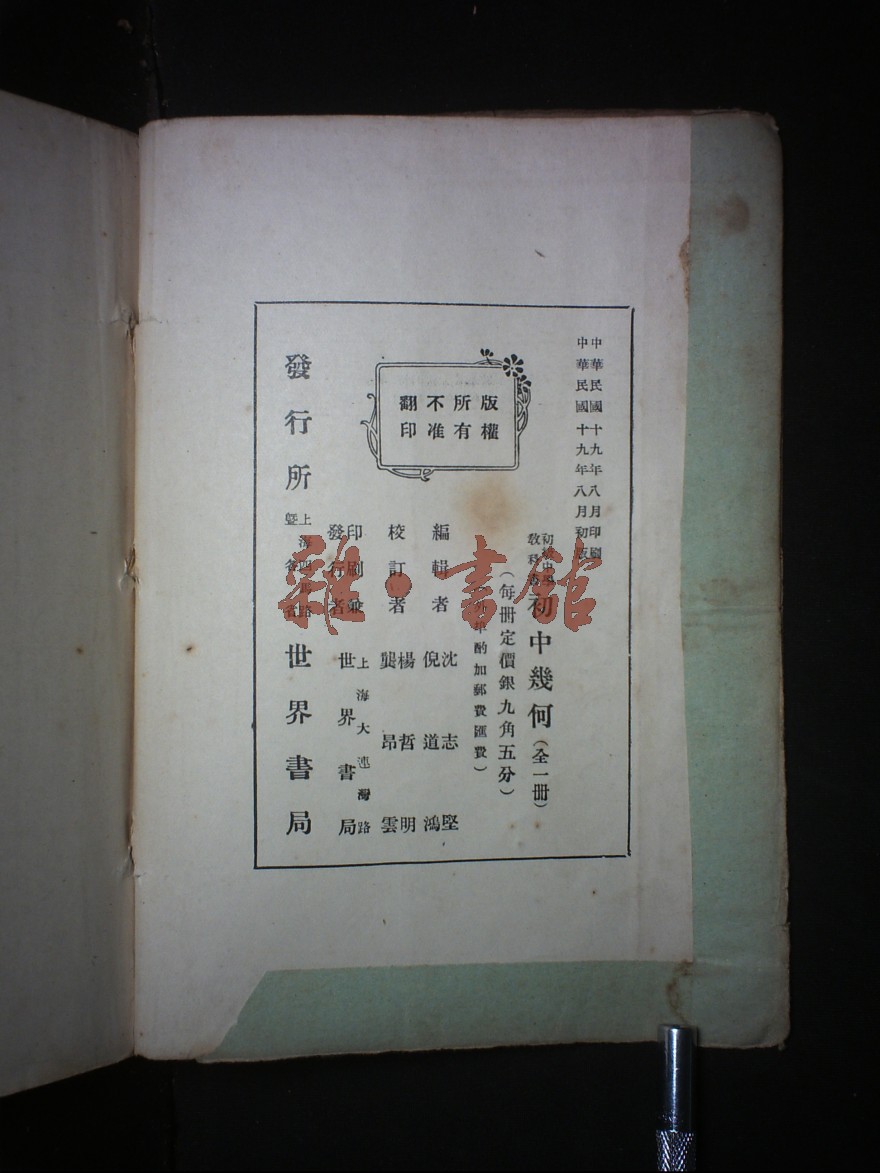 中華民國十九年八月印刷
中華民國十九年八月初版
初級中學
教科書
初中幾何(全一册)
(每册定價銀九角五分)
外埠酌加郵費匯費)
版權
所有
不准
翻印
編輯者
沈志堅
倪道鴻
校訂者
楊哲明
龔昂雲
印刷兼
發行者
上海大連灣路
世界書局
發行所
上海四馬路
暨各省
世界書局
雜·書館